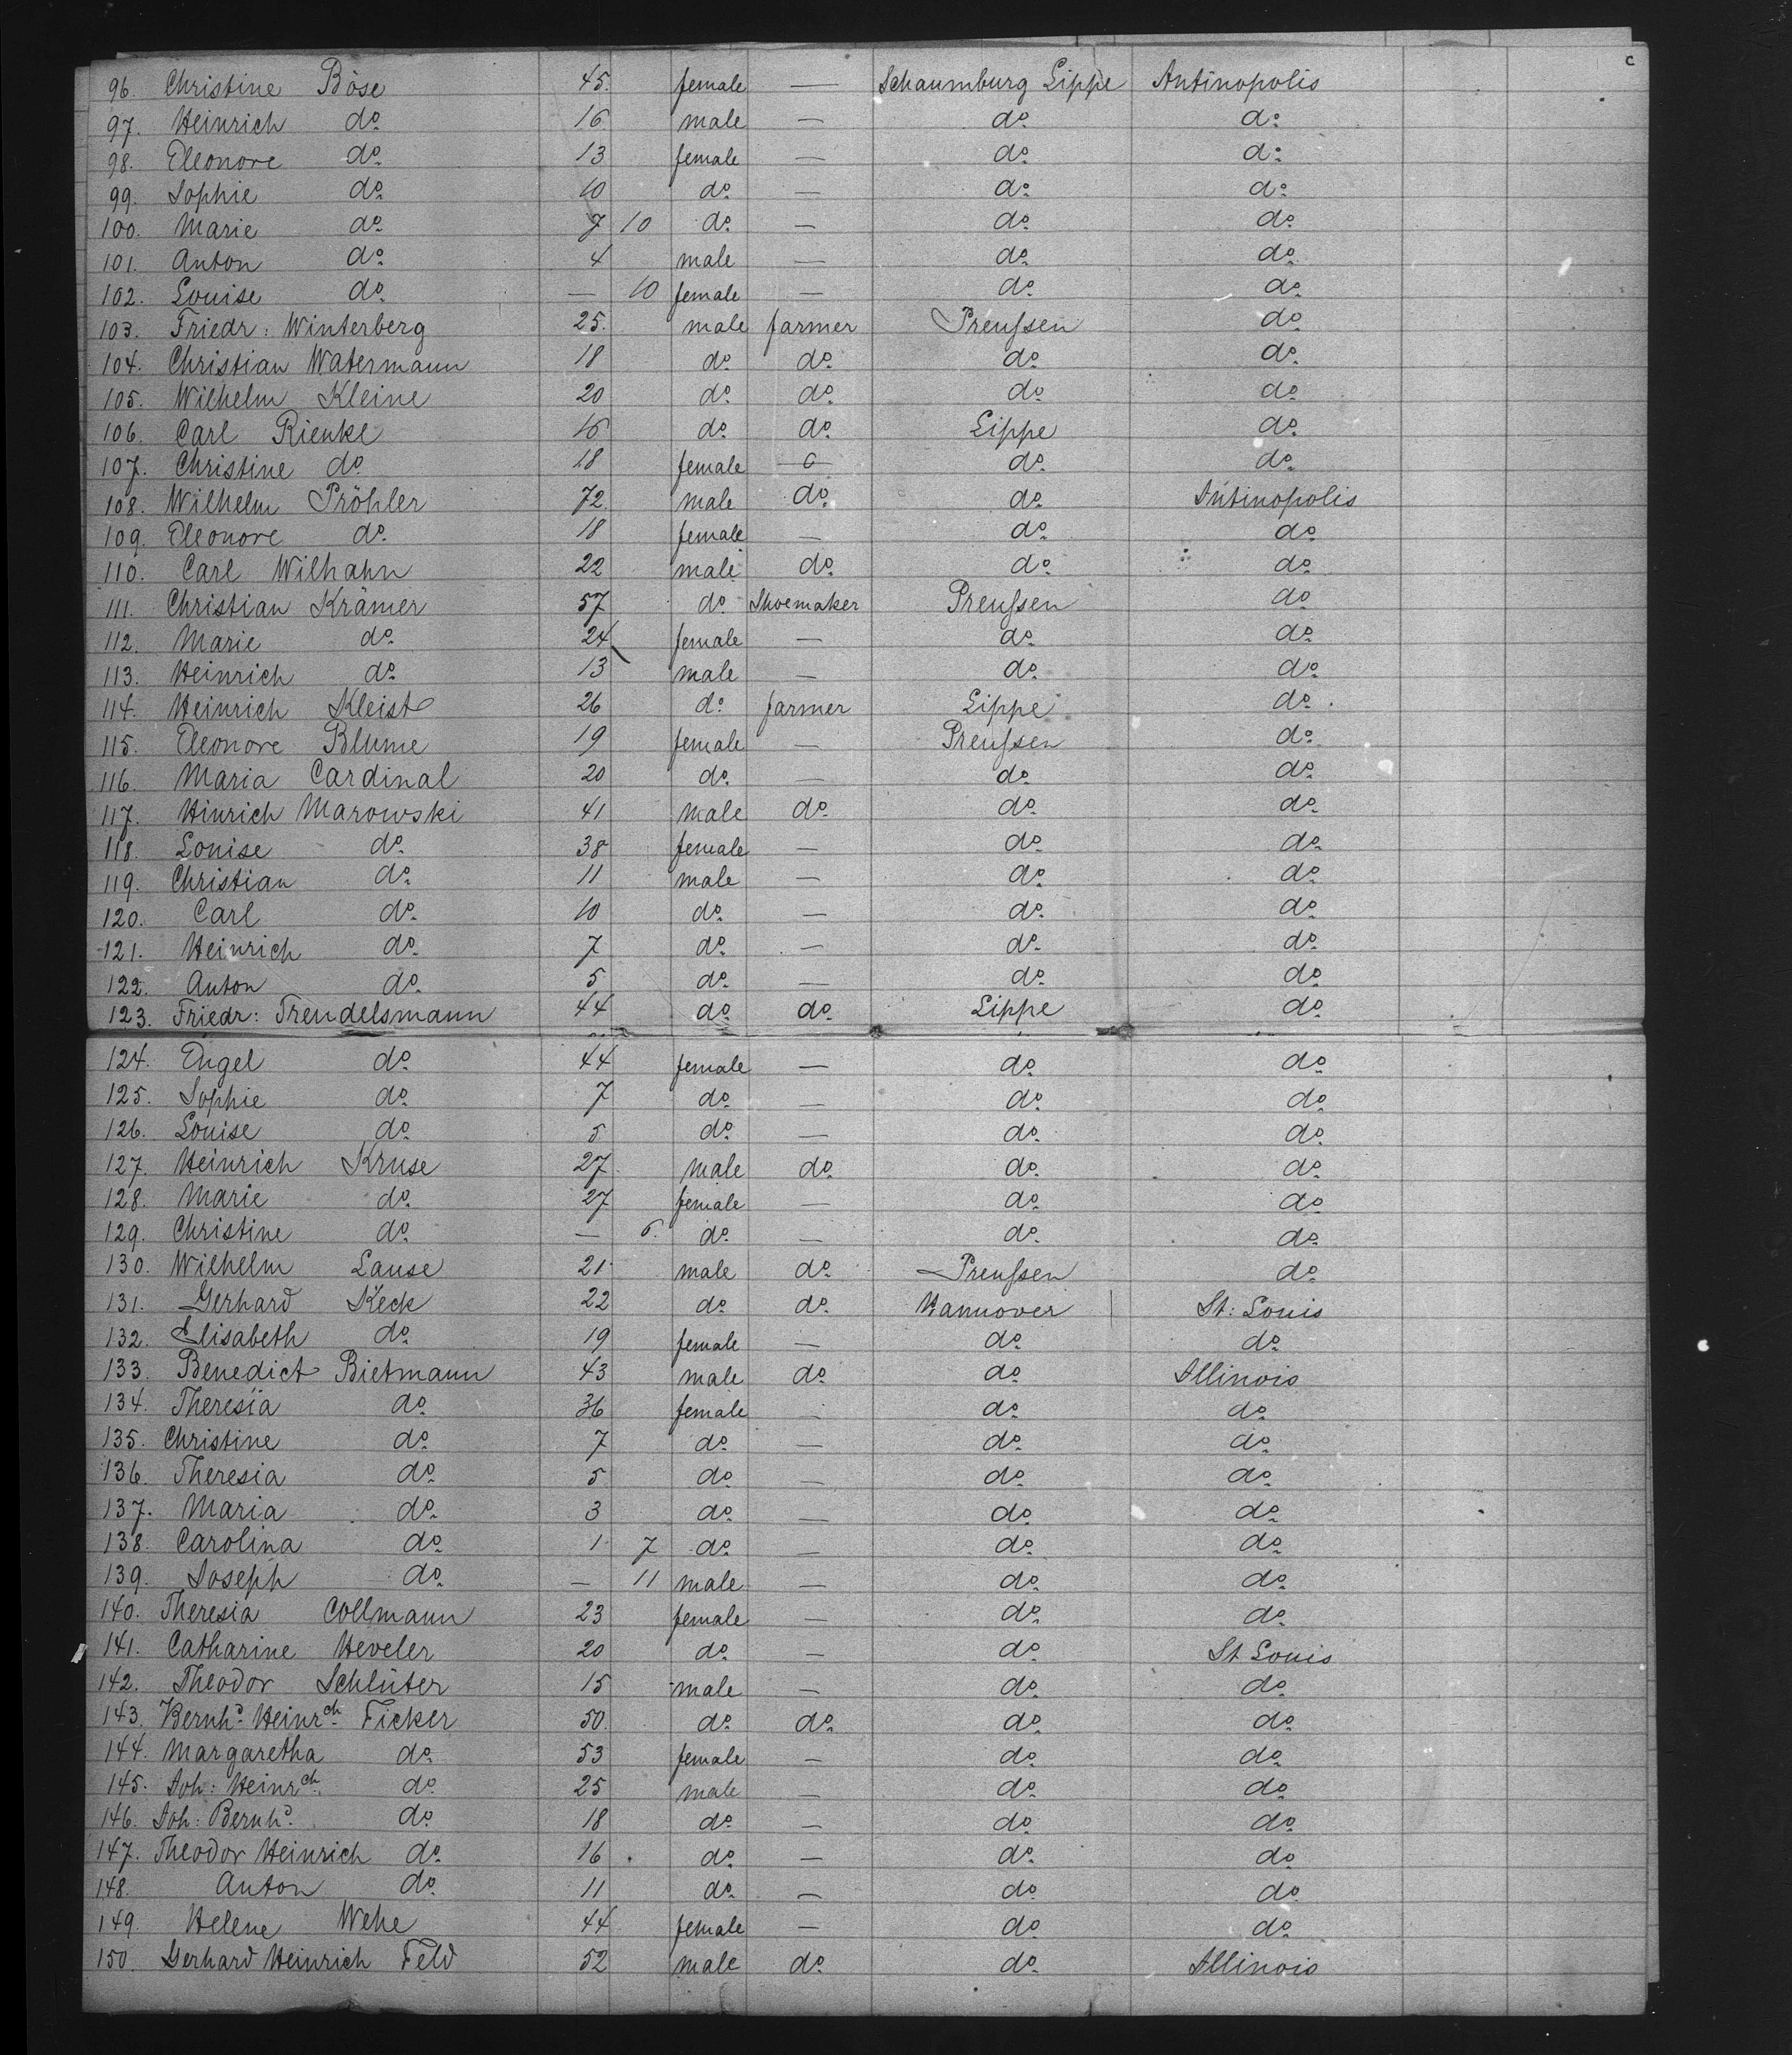 c
96. Christine Böse 45. female — Schaumburg Lippe Antinopolis
97. Heinrich do 16. male — do do
98. Eleonore do 13 female — do do
99. Sophie do 10 do — do do
100. Marie do 7 10 do — do do
101. Anton do 4 male — do do
102. Louise do — 10 female — do do
103. Friedr: Winterberg 25. male farmer Preußen do
104. Christian Watermann 18 do do do do
105. Wilhelm Kleine 20 do do do do
106. Carl Rienke 16 do do Lippe do
107. Christine do 18 female — do do
108. Wilhelm Pröhler 72. male do do Antinopolis
109. Eleonore do 18 female — do do
110. Carl Wilhahn 22 male do do do
111. Christian Krämer 57 do Shoemaker Preußen do
112. Marie do 24 female — do do
113. Heinrich do 13 male — do do
114. Heinrich Kleist 26 do farmer Lippe do
115. Eleonore Blume 19 female — Preußen do
116. Maria Cardinal 20 do — do do
117. Hinrich Marowski 41 male do do do
118. Louise do 38 female — do do
119. Christian do 11 male — do do
120. Carl do 10 do — do do
121. Heinrich do 7 do — do do
122. Anton do 5 do — do do
123. Friedr: Trendelsmann 44 do do Lippe do
124. Engel do 44 female — do do
125. Sophie do 7 do — do do
126. Louise do 5 do — do do
127. Heinrich Kruse 27 male do do do
128. Marie do 27 female — do do
129. Christine do — 6. do — do do
130. Wilhelm Lause 21 male do Preußen do
131. Gerhard Keck 22 do do Hannover St: Louis
132. Elisabeth do 19 female — do do
133. Benedict Bietmann 43 male do do Illinois
134. Theresia do 36 female — do do
135. Christine do 7 do — do do
136. Theresia do 5 do — do do
137. Maria do 3 do — do do
138. Carolina do 1 7 do — do do
139. Joseph do — 11 male — do do
140. Theresia Collmann 23 female — do do
141. Catharine Heveler 20 do — do St Louis
142. Theodor Schlüter 15 male — do do
143. Bernhd Heinrch Ficker 50. do do do do
144. Margaretha do 53 female — do do
145. Joh: Heinrch do 25 male — do do
146. Joh: Bernhd do 18 do — do do
147. Theodor Heinrich do 16 do — do do
148. Anton do 11 do — do do
149. Helene Wehe 44 female — do do
150. Gerhard Heinrich Feld 52 male do do Illinois